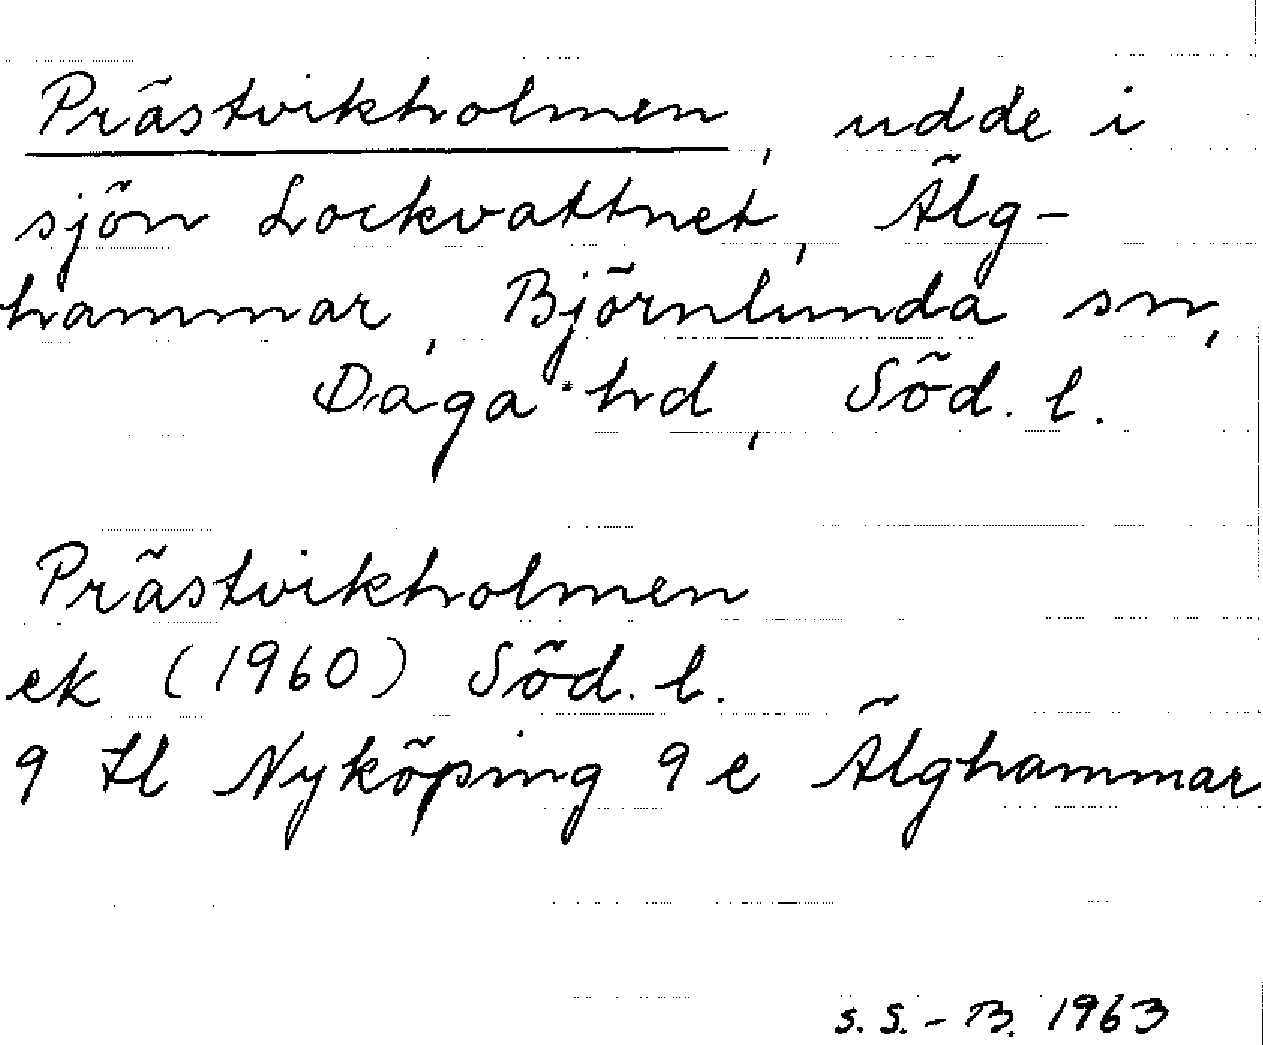 Prästvikholmen, udde i
sjön Lockvattnet, Älg-
hammar, Björnlunda sn,
Daga hd, Söd. l.
Prästvikholmen
ek (1960) Söd. l.
9 tl Nyköping 9 e Älghammar
S. S. - B. 1963